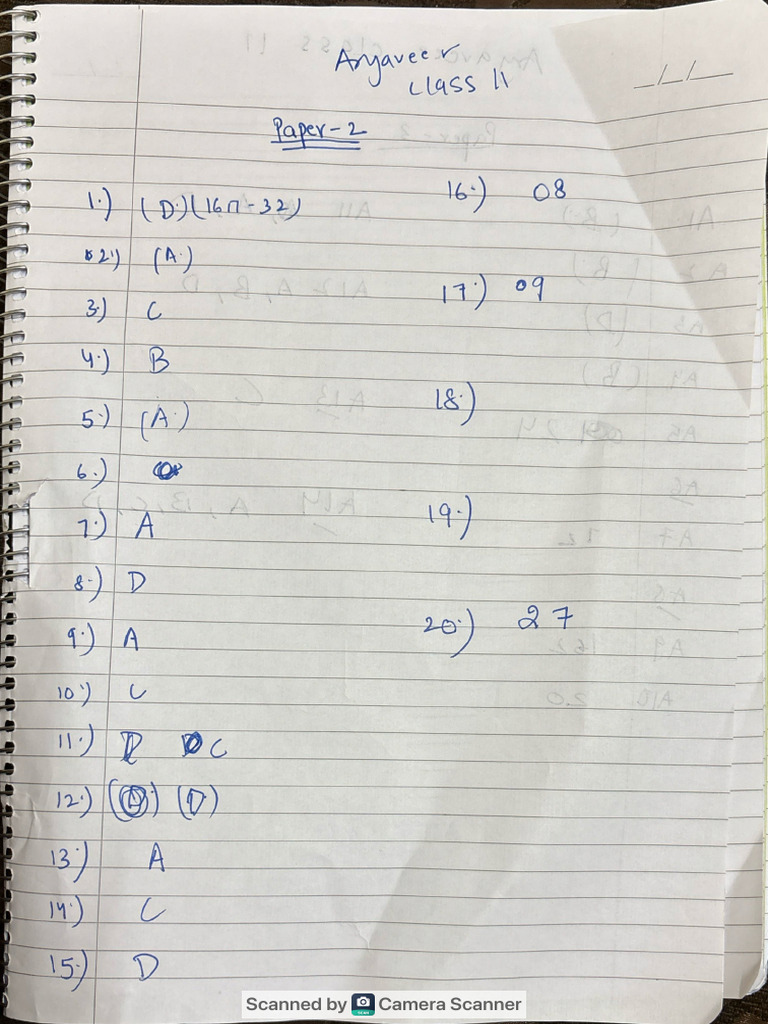 Aryaveer
class 11
Paper-2
_/_/_
1.) (D.)(16π-32)
2.) (A.)
3.) C
4.) B
5.) (A.)
6.)
7.) A
8.) D
9.) A
10.) C
11.) C
12.) (D)
13.) A
14.) C
15.) D
16.) 08
17.) 09
18.)
19.)
20.) 27
Scanned by Camera Scanner